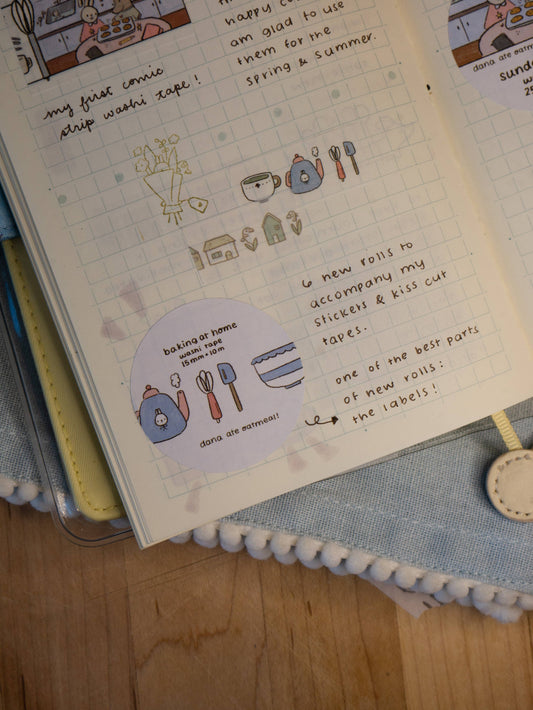 happy
am glad to use
them for the
spring & summer.
my first comic
strip washi tape!
6 new rolls to
accompany my
stickers & kiss cut
tapes.
one of the best parts
of new rolls:
the labels!
baking at home
washi tape
15mm + 10m
dana ate oatmeal!
dana ate oatme
Sunda